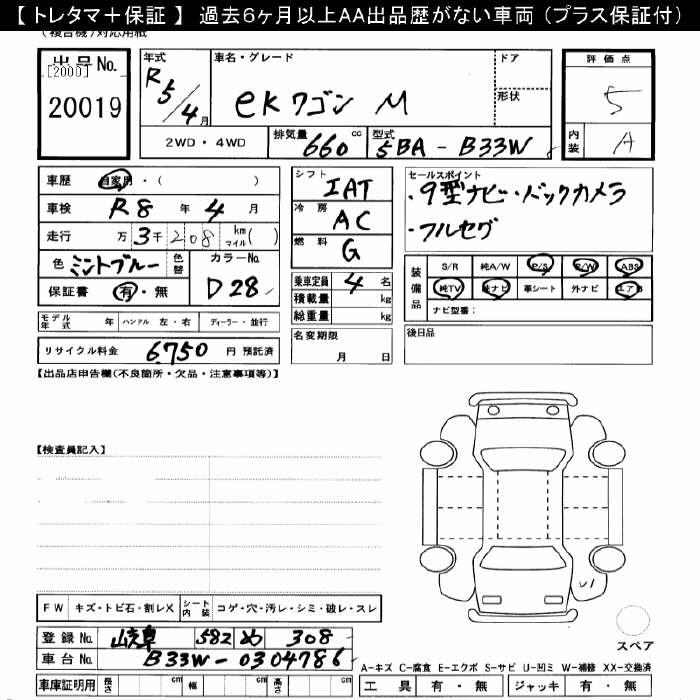 【 トレタマ＋保証 】 過去6ヶ月以上AA出品歴がない車両 （プラス保証付）
出品No. [2000] 20019
年式 R5/4月
車名・グレード eKワゴン M
ドア
形状
評価点 5
内装 A
2WD ・ 4WD
排気量 660 cc
型式 5BA - B33W
車歴 自家用 ・（ ）
車検 R8 年 4 月
走行 万 3千208 km マイル（ ）
色 ミントブルー 色替
カラーNo. D28
保証書 有・無
シフト IAT
冷房 AC
燃料 G
乗車定員 4 名
積載量 kg
総重量 kg
セールスポイント
・9型ナビ・バックカメラ
・フルセグ
装備品 S/R 純A/W P/S P/W ABS
純TV 純ナビ 革シート 外ナビ エアB
ナビ型番：
モデル年式 年 ハンドル 左・右 ディーラー・並行
リサイクル料金 6,750 円 預託済
名変期限 月 日
後日品
【出品店申告欄(不良箇所・欠品・注意事項等)】
【検査員記入】
U1
FW キズ・トビ石・割レX シート内装 コゲ・穴・汚レ・シミ・破レ・スレ
登録No. 岐阜 582 め 308
車台No. B33W-0304786
スペア
A-キズ C-腐食 E-エクボ S-サビ U-凹ミ W-補修 XX-交換済
車庫証明用 長さ cm 幅 cm 高さ cm
工具 有・無 ジャッキ 有・無